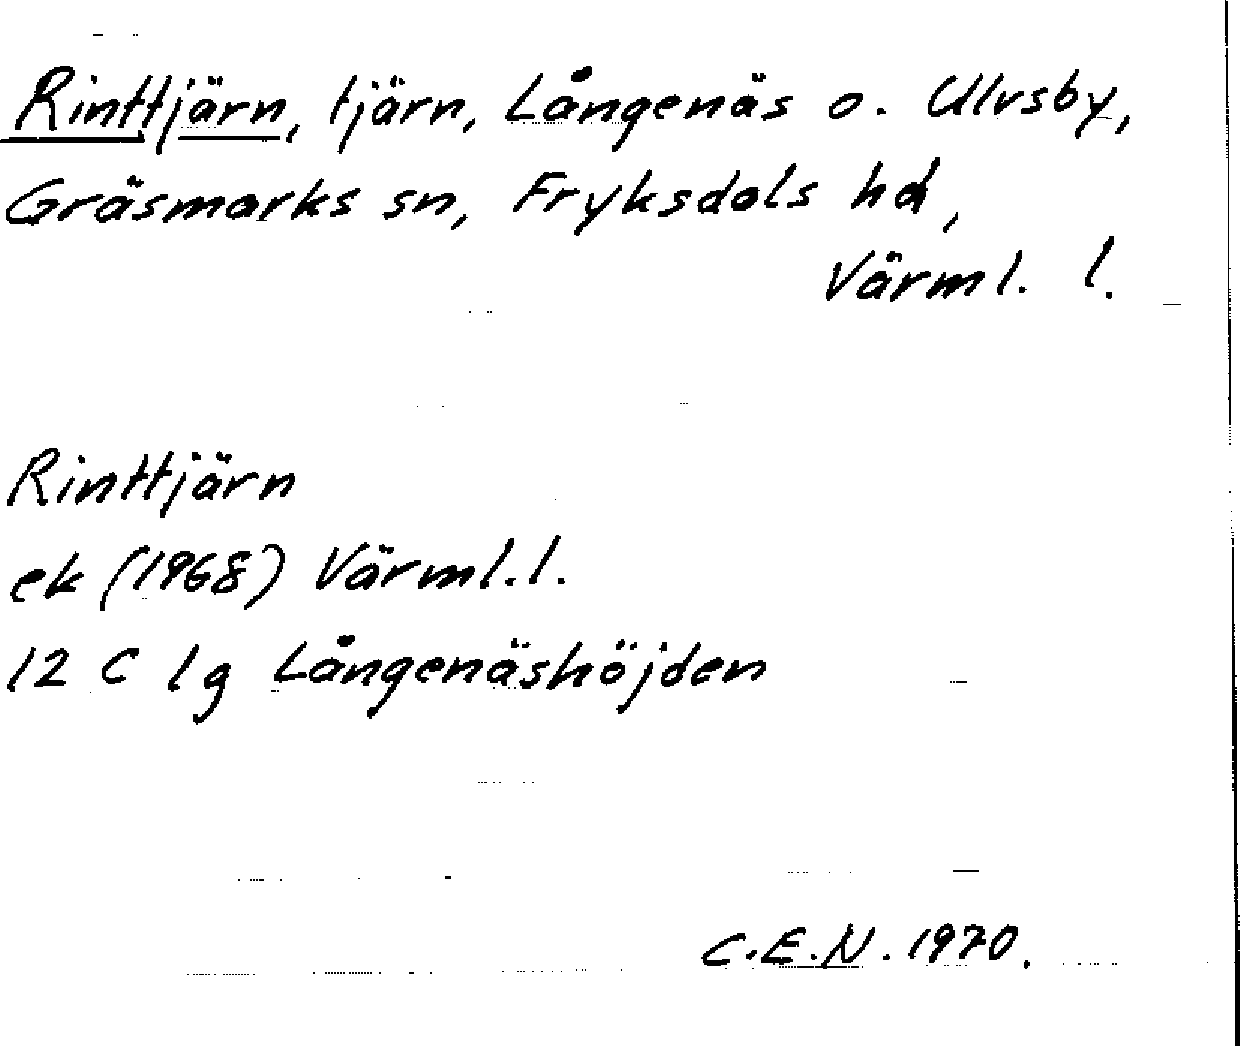 Rinttjärn, tjärn, Långenäs o. Ulvsby,
Gräsmarks sn, Fryksdals hd,
Värml. l.
Rinttjärn
ek (1968) Värml. l.
12 C 1g Långenäshöjden
C.E.N. 1970.